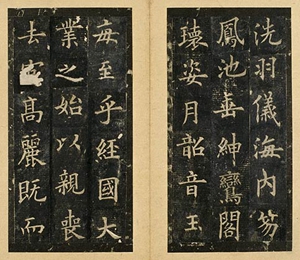 洗羽儀海内笏
鳳池垂紳鸞閣
瓌姿月韶音玉
毎至乎經國大
業之始以親喪
去高麗既而